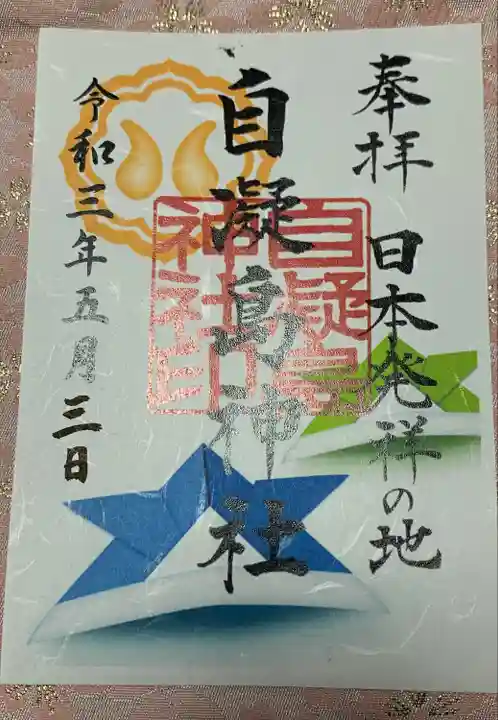 奉拝
日本発祥の地
自凝島神社
自凝島
神社印
令和三年五月三日